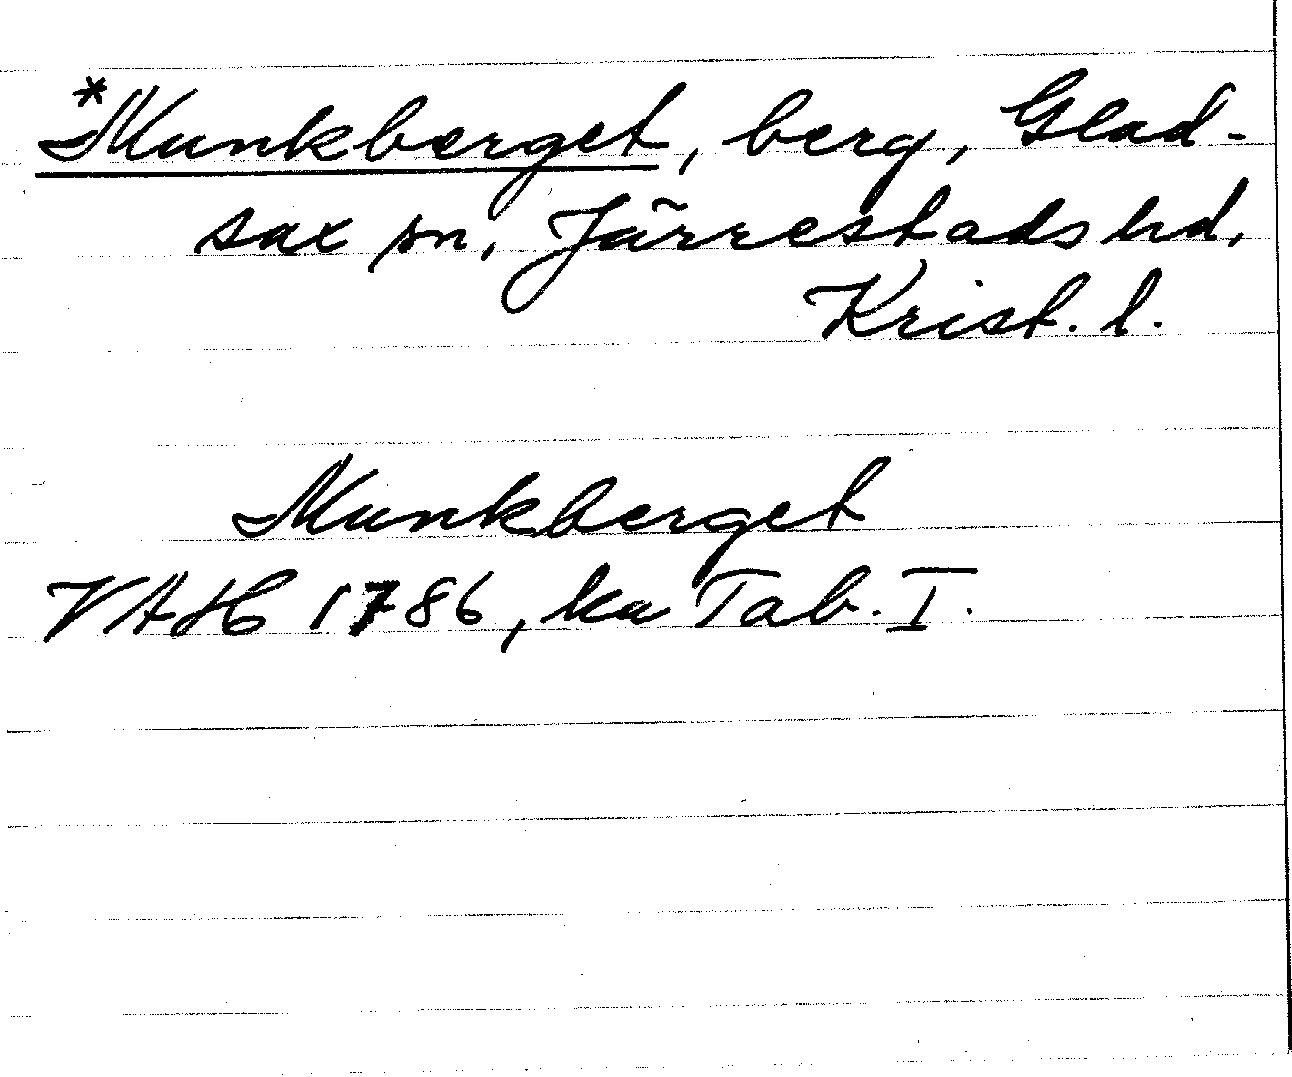 *Munkberget, berg, Glad-
sax sn, Järrestads hd,
Krist. l.
Munkberget
VAH 1786, ka Tab. I.